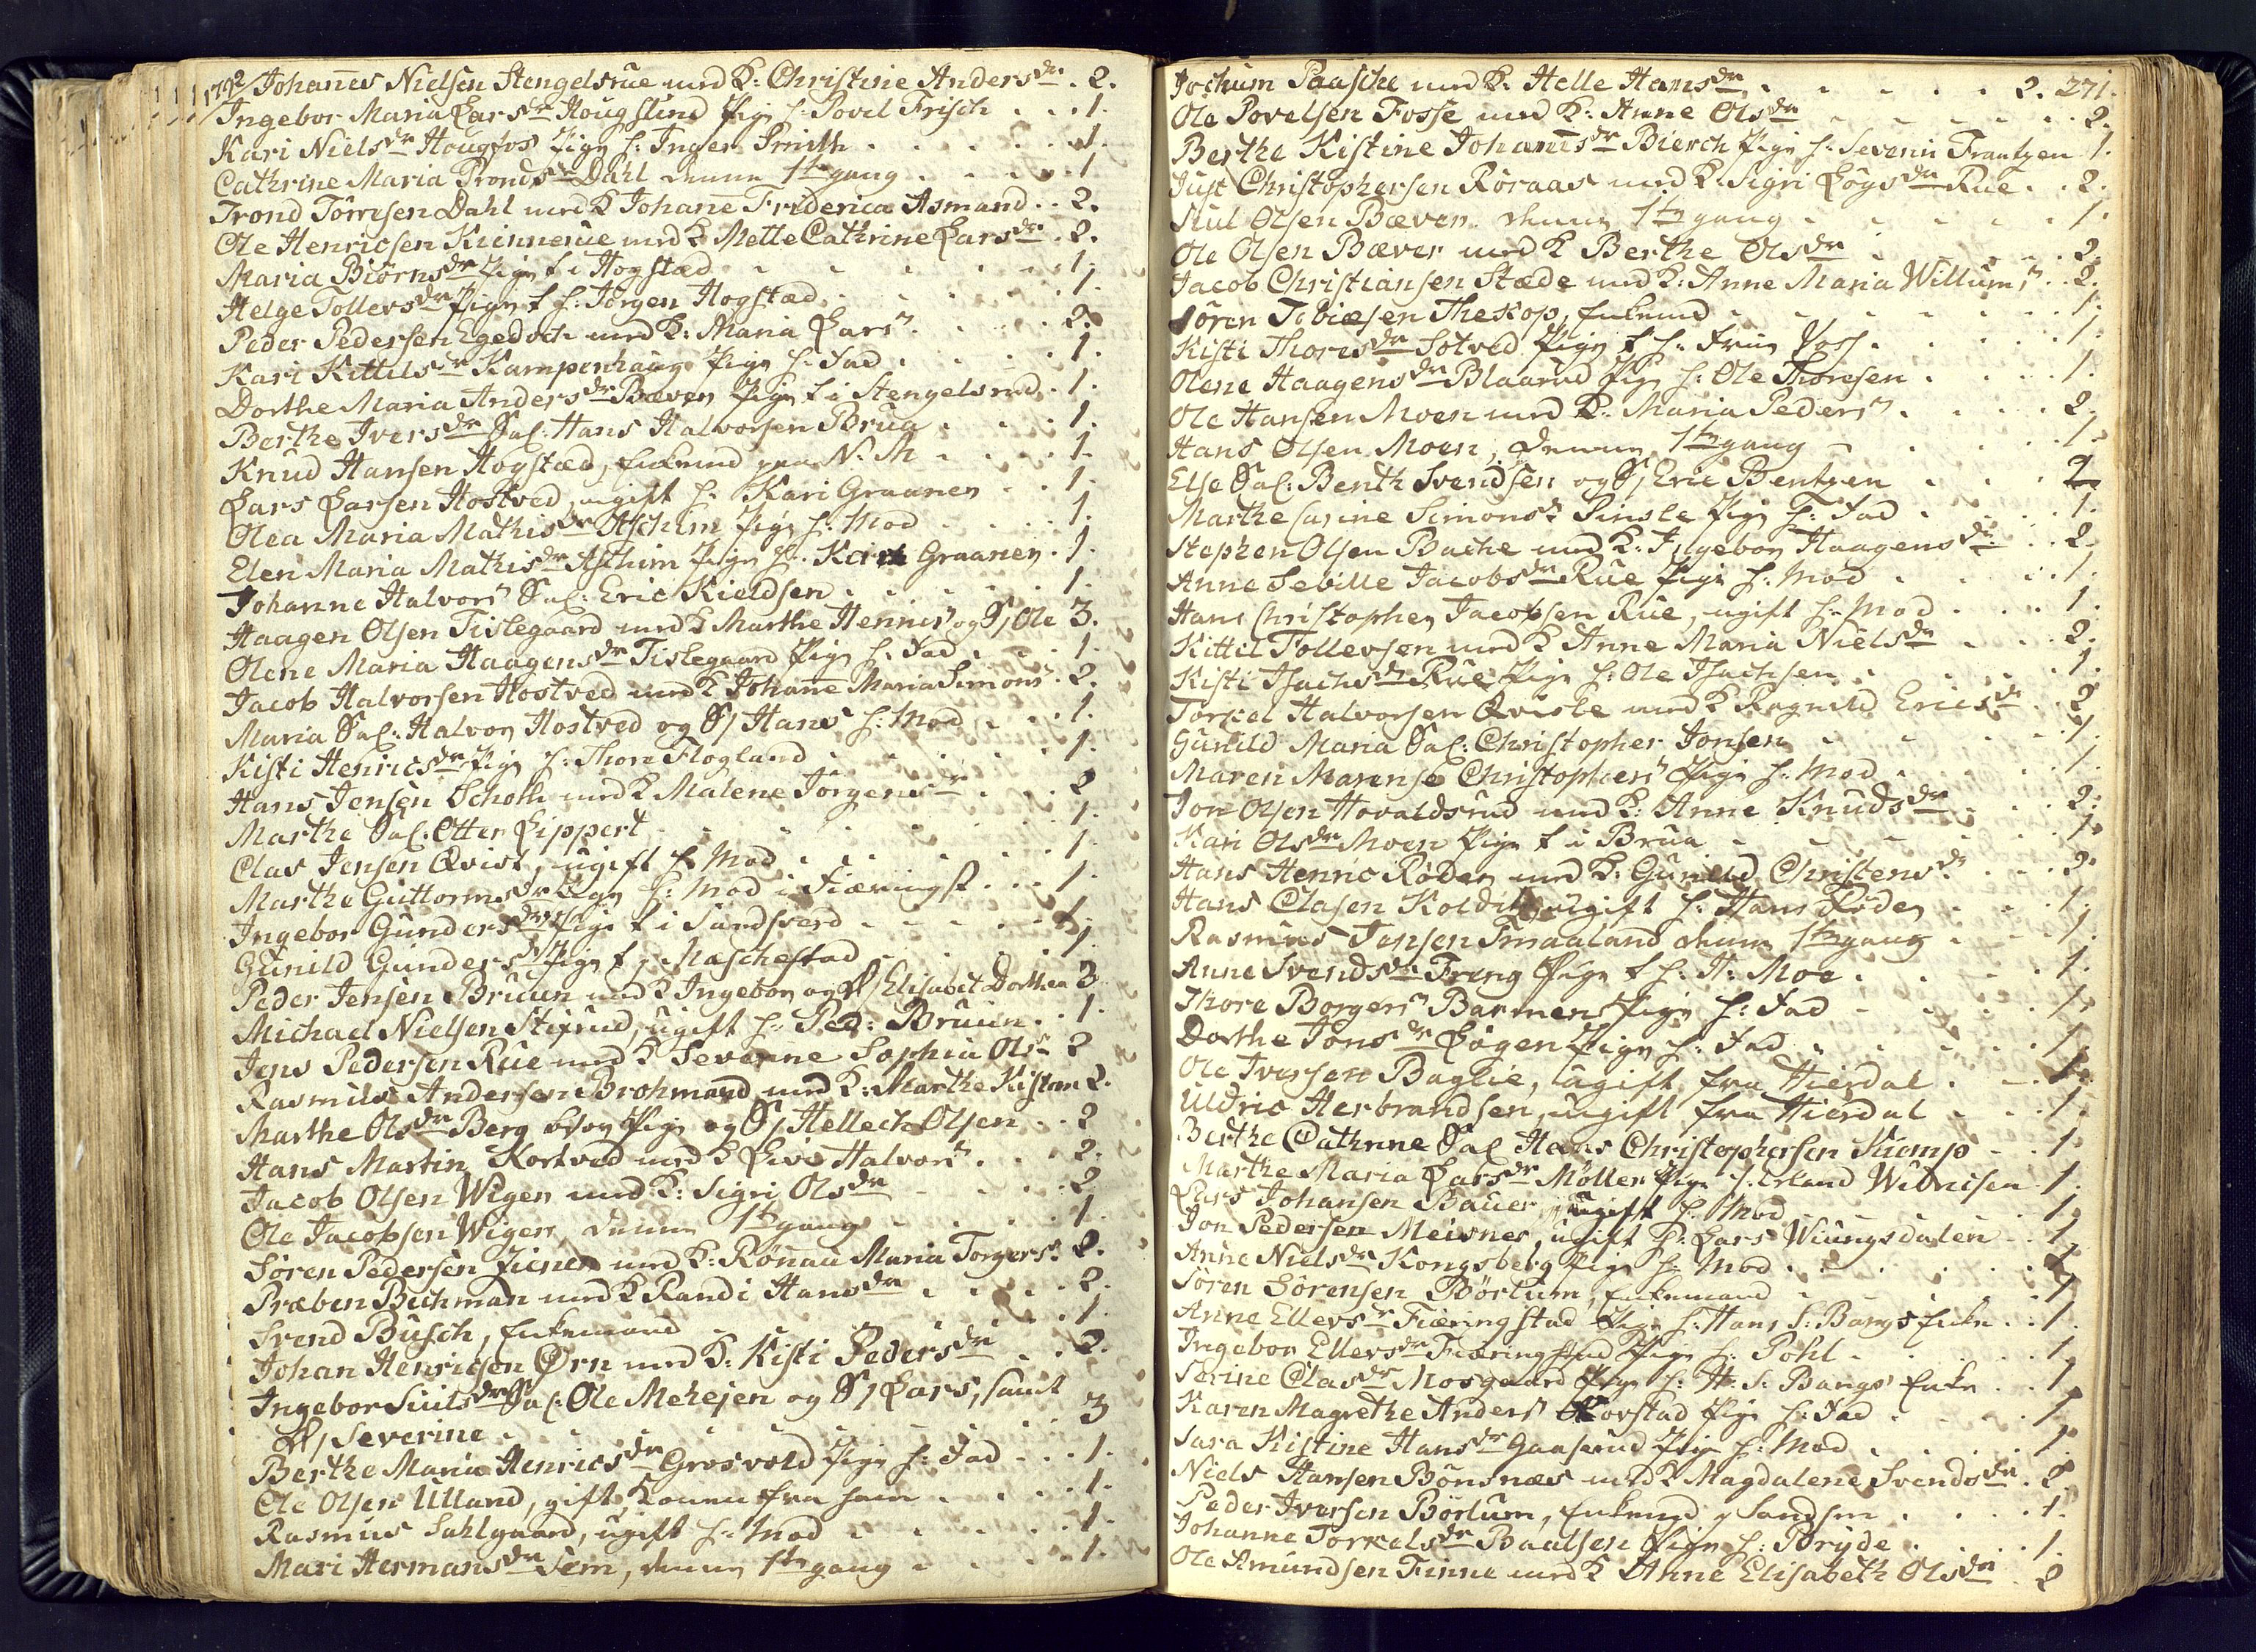 1792 Johanes Nielsen Stengelsrue med K: Christine Andersdr . 2.
Ingebor Maria Larsdr Hougslund Pige h: Povel Frisch . . . 1.
Kari Nielsdr Hougfos Pige h: Inger Smith . . . . . 1.
Cathrine Maria Trondsdr Dahl denne 1te gang . . . . 1
Trond Torresen Dahl med K Johane Friderica Asmand . . 2.
Ole Henricsen Kinnerue med K Mette Cathrine Larsdr . 2.
Maria Biörnsdr Pige t i Hogstad . . . . . 1.
Helge Tollevsdr Pige t h: Jörgen Hogstad . . . . 1.
Peder Pedersen Egedoch med K: Maria Larsdr . . . 2.
Kari Kittilsdr Kampenhaug Pige h: Fad . . . . . 1.
Dorthe Maria Andersdr Bæver Pige t i Stengelsrud . 1.
Berthe Iversdr Sal: Hans Halvorsen Brua . . . . 1.
Knud Hansen Hogstad, Enkemd paa N. M . . . . 1.
Lars Larsen Hostved, ugift h: Kari Graanen . . 1.
Olea Maria Mathisdr Aschim Pige h: Mod . . . . 1.
Elen Maria Mathisdr Aschim Pige h: Kari Graanen . 1.
Johanne Halvorsdr Sal: Eric Kieldsen . . . . . 1.
Haagen Olsen Tislegaard med K Marthe Hennisdr og S/ Ole 3.
Olene Maria Haagensdr Tislegaard Pige h: Fad . . . 1.
Jacob Halvorsen Hostved med K Johane Maria Simonsdr . 2.
Maria Sal: Halvor Hostved og S/ Hans h: Mod . . . 1.
Kisti Henricsdr Pige h: Thore Flogland . . . . 1.
Hans Jensen Schoth med K Malene Jörgensdr . . . 2
Marthe Sal: Otter Lippert . . . . . 1.
Clas Jensen Qvist, ugift h: Mod . . . . . 1.
Marthe Guttormsdr Pige h: Mod i Fiæringst . . . 1.
Ingebor Gundersdr Pige t i Sandsværd . . . . 1.
Gunild Gundersdr Pige t p Maschestad . . . . 1.
Peder Jensen Bruun med K Ingebor og D/ Elisabet Dorthea 3
Michael Nielsen Stixrud, ugift h: Ped: Bruun . . 1.
Jens Pedersen Rue med K Severine Sophia Olsdr 2
Rasmus Andersen Brohmand med K: Marthe Kistine 2.
Marthe Olsdr Berg Pige og S/ Hellech Olsen . . 2
Hans Martin Kortved med K Live Halvorsdr . . . 2.
Jacob Olsen Wigen med K: Sigri Olsdr . . . . 2
Ole Jacobsen Wigen, denne 1te gang . . . . . 1.
Sören Pedersen Fienen med K: Rönau Maria Torgersdr 2.
Præben Bechman med K Randi Hansdr . . . . 2.
Svend Busch, Enkemand . . . . . 1.
Johan Henricsen Örn med K: Kisti Pedersdr . . 2.
Ingebor Siulsdr Sal: Ole Mehejen og S/ Lars, samt
D/ Severine . . . . . 3
Berthe Maria Henricsdr Grosvold Pige h: Fad . . . 1.
Ole Olsen Ulland, gift, Konen fra ham . . . . 1.
Rasmus Sahlgaard, ugift h: Mod . . . . . 1.
Mari Hermansdr Sem, denne 1te gang . . . . 1.
Jochum Paasche med K: Helle Hansdr . . . . . 2. 271.
Ole Povelsen Fosse med K: Anne Olsdr . . . . . 2.
Berthe Kistine Johansdr Bierch Pige h: Severin Frantzen 1.
Just Christophersen Röraas med K: Sigri Logsdr Rue . . 2.
Siul Olsen Bæver denne 1te gang . . . . . 1.
Ole Olsen Bæver med K Berthe Olsdr . . . . 2.
Jacob Christiansen Stæde med K: Anne Maria Willumsdr . . 2.
Sören Tobiæsen Theskop, Enkemd . . . . . 1.
Kisti Thoresdr Sotved Pige t h: Frue Voss . . . . 1.
Olene Haagensdr Blaarud Pige h: Ole Thoresen . . . . 1.
Ole Hansen Moen med K: Maria Pedersdr . . . . 2.
Hans Olsen Moen, denne 1te gang . . . . 1.
Else Sal: Benth Svendsen og S/ Eric Bentzen . . . 2
Marthe Carine Simonsdr Pinsle Pige h: Fad . . . . 1.
Stephen Olsen Bache med K: Ingebor Haagensdr . . 2.
Anne Seville Jacobsdr Rue Pige h: Mod . . . . 1.
Hans Christopher Jacobsen Rue, ugift h: Mod . . . 1.
Kittil Tollevsen med K Anne Maria Nielsdr . . . 2.
Kisti Isachsdr Rue Pige h: Ole Isachsen . . . . 1.
Torkel Halvorsen Qvisle med K Ragnild Ericsdr . . 2
Gunild Maria Sal: Christopher Jonsen . . . . 1.
Maren Marense Christophersdr Pige h: Mod . . . . 1.
Jon Olsen Hovaldsrud med K: Anne Knudsdr . . . 2.
Kari Olsdr Moen Pige t i Brua . . . . 1.
Hans Henric Röder med K: Gunild Christensdr . . . 2
Hans Clasen Koldit, ugift h: Hans Röder . . . 1.
Rasmus Jensen Smaaland denne 1te gang . . . 1.
Anne Svendsdr Freng Pige t h: H: Moe . . . . 1.
Thore Borgersdr Barmen Pige h: Fad . . . . 1.
Dorthe Jonsdr Lögen Pige h: Fad . . . . . 1.
Ole Iversen Baglie, ugift, fra Hierdal . . . 1.
Uldric Herbrandsen, ugift fra Hierdal . . . 1.
Berthe Cathrine Sal Hans Christophersen Kiemp . . 1.
Marthe Maria Larsdr Möller Pige h: Erland Wibersen 1.
Lars Johansen Bauer, ugift h: Mod . . . . 1.
Jon Pedersen Meisner, ugift h: Lars Wiungsdalen . . 1.
Anne Nielsdr Kongsberg Pige h: Mod . . . . . 1
Sören Sörensen Börtum, Enkemand . . . . 1
Anne Ellevsdr Fiæringstad Pige h: Hans S: Bangs Enke . . 1.
Ingebor Ellevsdr Fiæringstad Pige h: Pohl . . . . 1.
Serine Clasdr Mosgaard Pige h: H: S: Bangs Enke . . 1.
Karen Magrethe Andersdr Korstad Pige h: Fad . . . 1.
Sara Kistine Hansdr Gaaserud Pige h: Mod . . . . 1.
Niels Hansen Bönsnæs med K Magdalene Svendsdr . 2.
Peder Iversen Börtum, Enkemd p Sandsv . . . . 1.
Johanne Torkelsdr Baalsen Pige h: Bryde . . . . 1.
Ole Amundsen Finne med K Anne Elisabeth Olsdr . 2